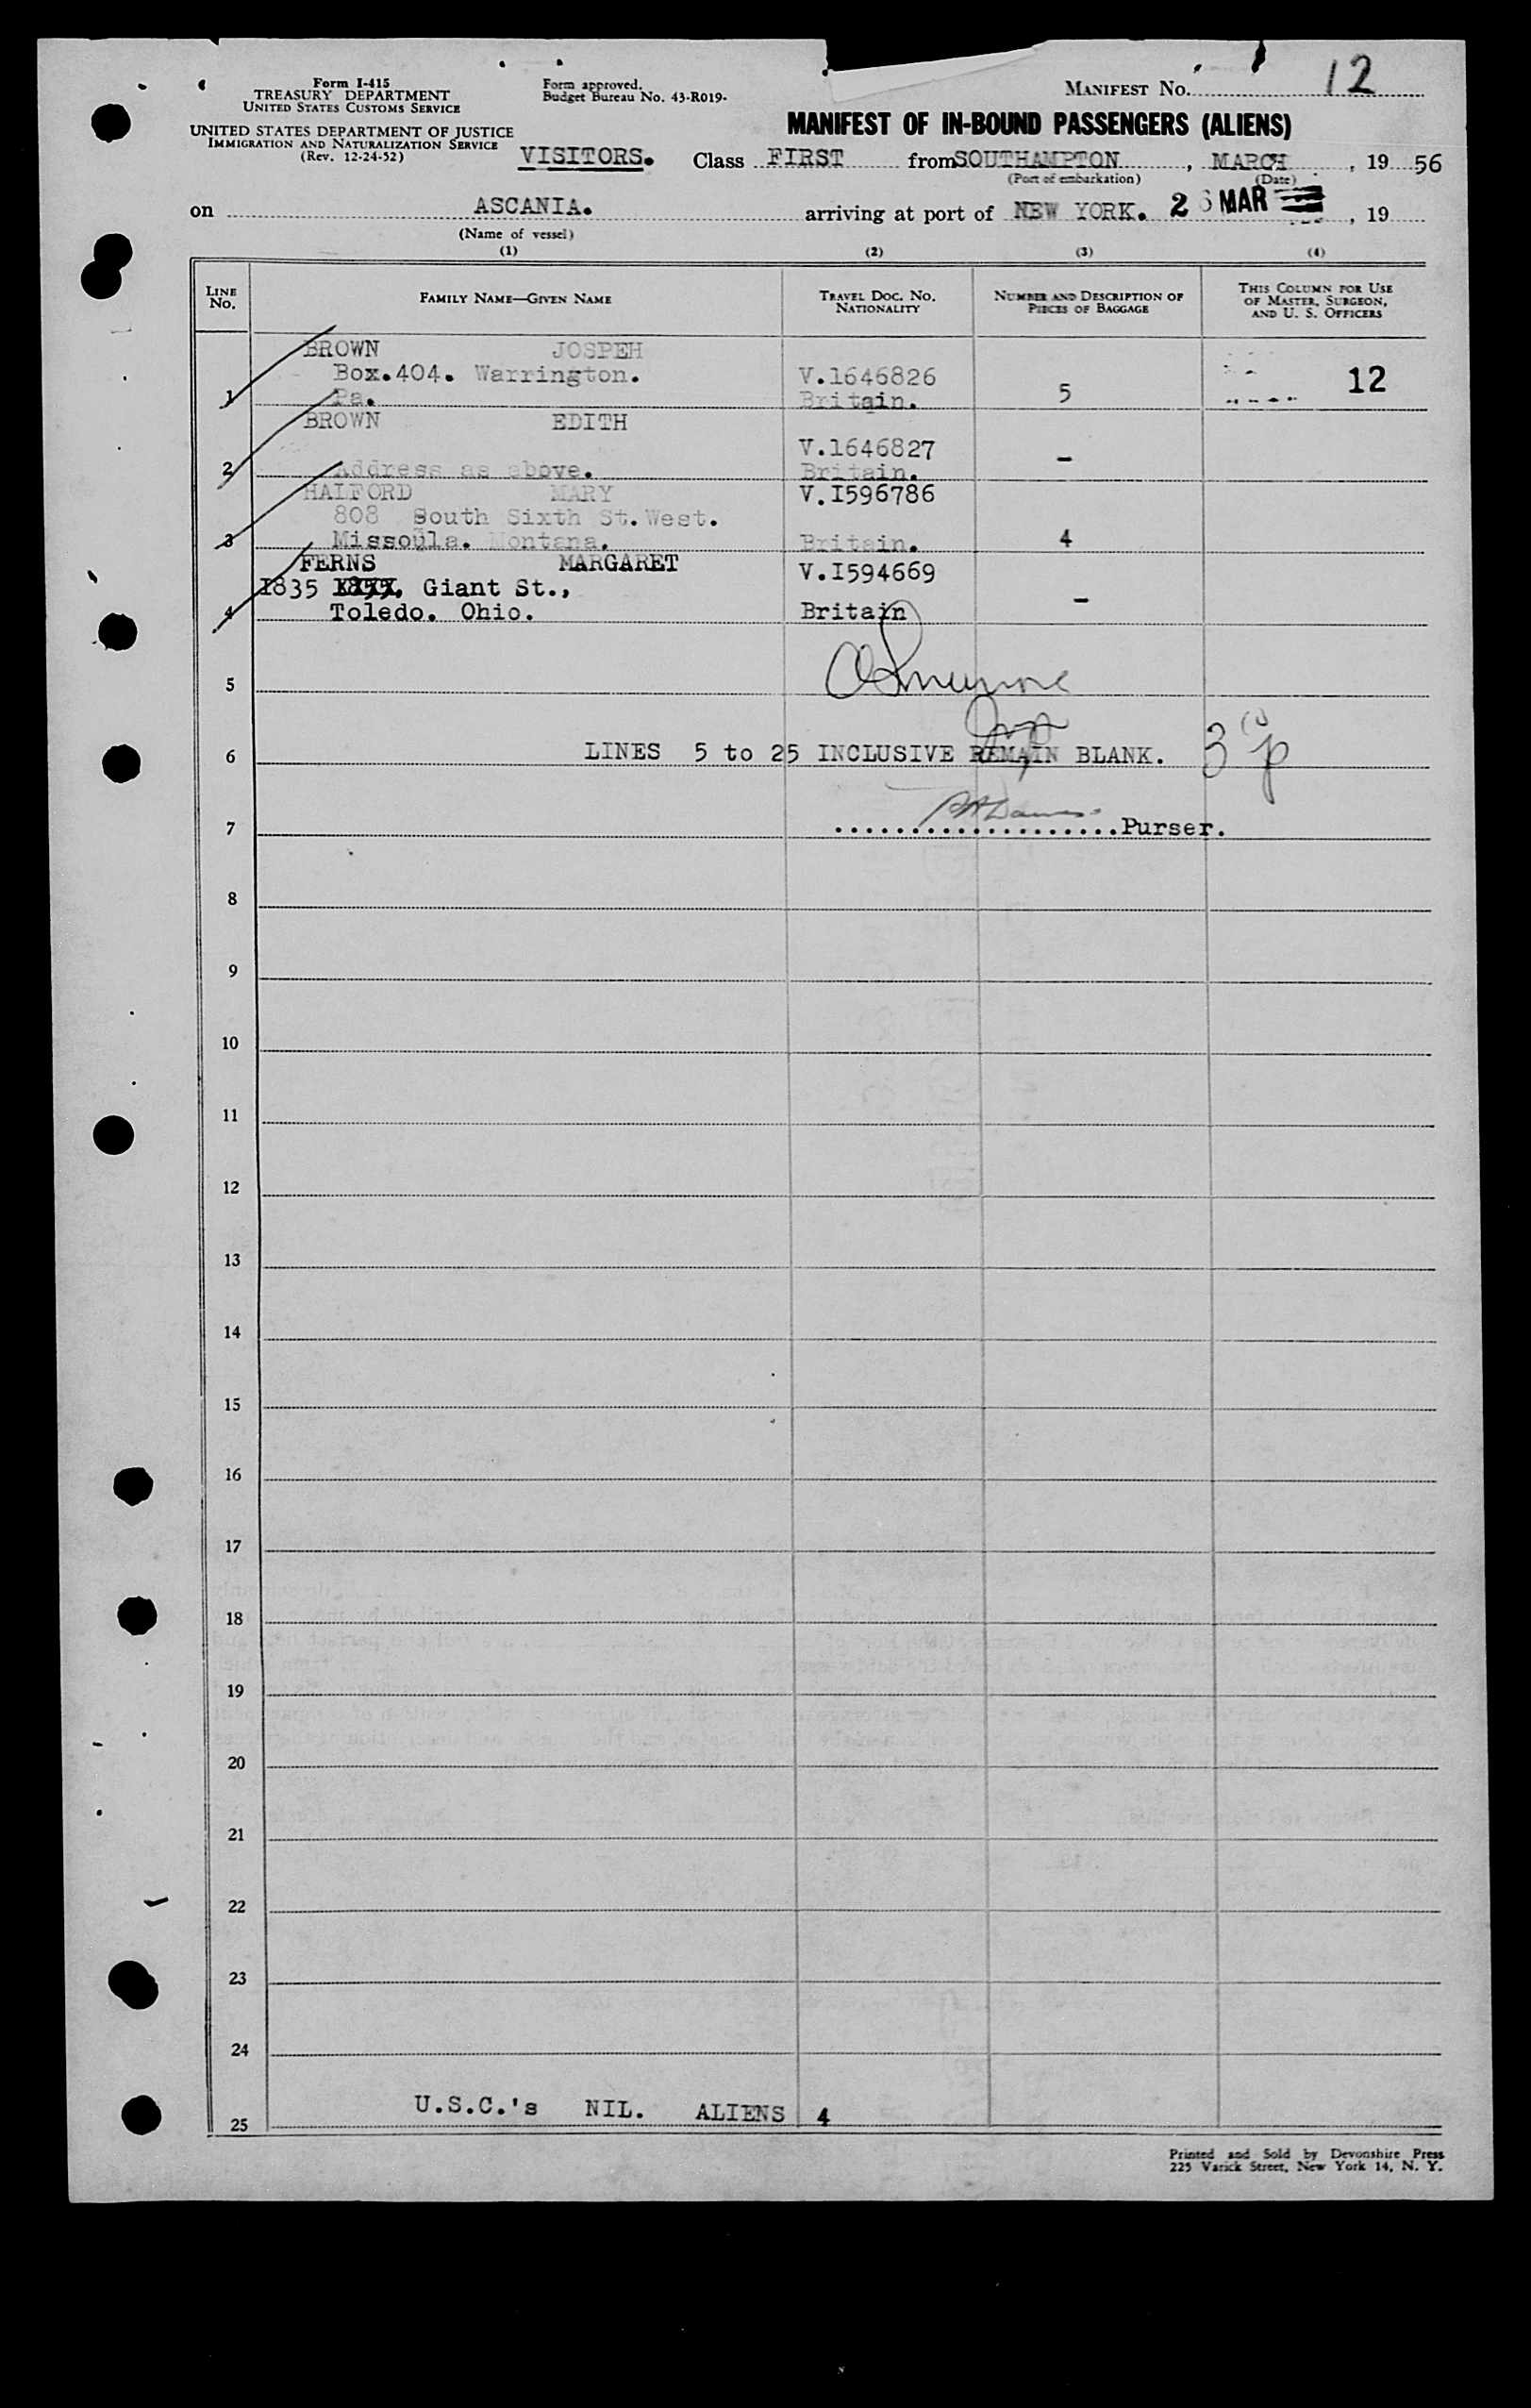 Form I-415
TREASURY DEPARTMENT
UNITED STATES CUSTOMS SERVICE
UNITED STATES DEPARTMENT OF JUSTICE
IMMIGRATION AND NATURALIZATION SERVICE
(Rev. 12-24-52)
Form approved.
Budget Bureau No. 43-R019-
MANIFEST NO. 12
MANIFEST OF IN-BOUND PASSENGERS (ALIENS)
VISITORS. Class FIRST from SOUTHAMPTON, MARCH, 19 56
(Port of embarkation) (Date)
on ASCANIA. arriving at port of NEW YORK. 26 MAR, 19
(Name of vessel)
(1) (2) (3) (4)
LINE NO.
FAMILY NAME—GIVEN NAME
TRAVEL DOC. NO. NATIONALITY
NUMBER AND DESCRIPTION OF PIECES OF BAGGAGE
THIS COLUMN FOR USE OF MASTER, SURGEON, AND U. S. OFFICERS
BROWN JOSPEH
Box.404. Warrington. V.1646826 12
1 Pa. Britain. 5
BROWN EDITH
V.1646827
2 Address as above. Britain. -
HALFORD MARY V.I596786
808 South Sixth St.West.
3 Missoula. Montana. Britain. 4
FERNS MARGARET V.I594669
1835 Giant St.,
4 Toledo. Ohio. Britain -
5
6 LINES 5 to 25 INCLUSIVE REMAIN BLANK.
7 Purser.
8
9
10
11
12
13
14
15
16
17
18
19
20
21
22
23
24
25 U.S.C.'s NIL. ALIENS 4
Printed and Sold by Devonshire Press
225 Varick Street, New York 14, N. Y.